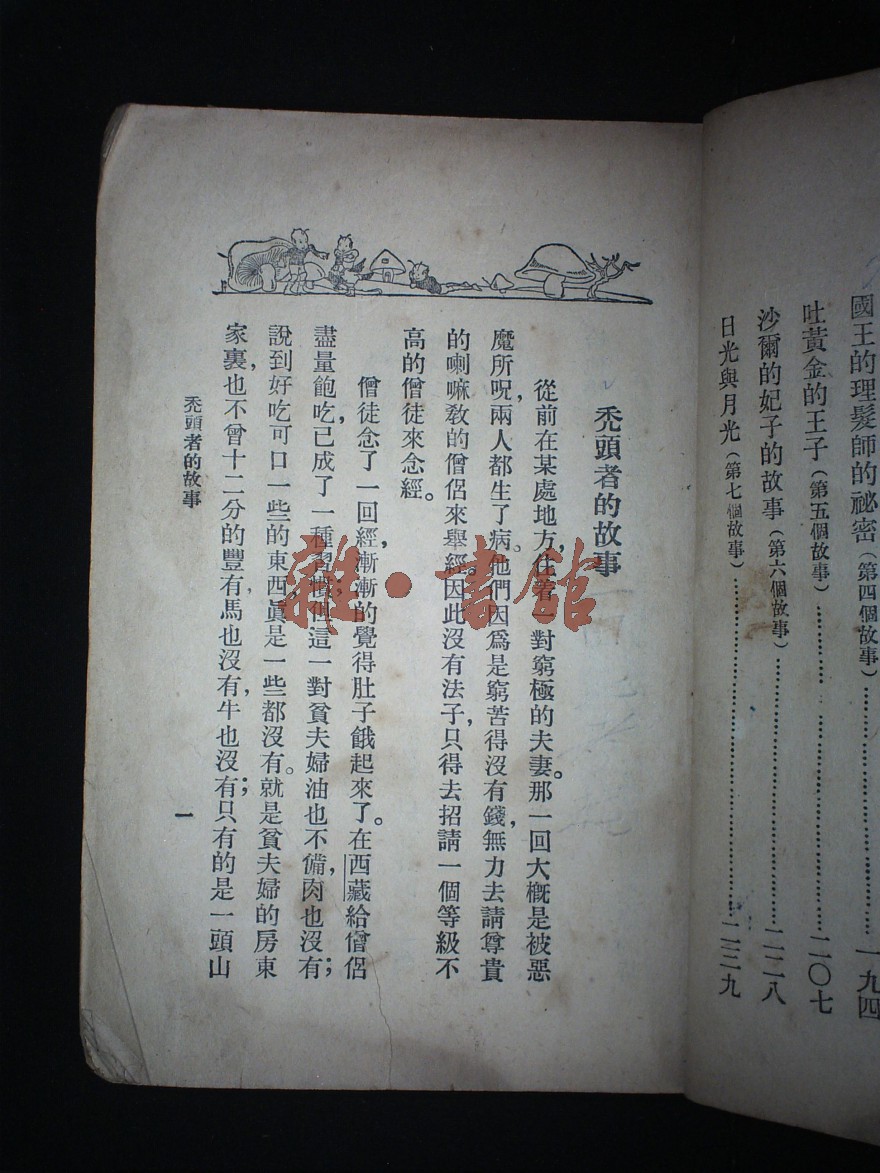 國王的理髮師的祕密(第四個故事)……一九四
吐黃金的王子(第五個故事)……二〇七
沙爾的妃子的故事(第六個故事)……二二八
日光與月光(第七個故事)……二三九
禿頭者的故事
從前在某處地方,住着一對窮極的夫妻。那一回大槪是被惡
魔所呪,兩人都生了病。他們因爲是窮苦得沒有錢,無力去請尊貴
的喇嘛敎的僧侶來舉經。因此沒有法子,只得去招請一個等級不
高的僧徒來念經。
僧徒念了一回經,漸漸的覺得肚子餓起來了。在西藏給僧侶
盡量飽吃,已成了一種習慣,但這一對貧夫婦油也不備,肉也沒有;
說到好吃可口一些的東西眞是一些都沒有。就是貧夫婦的房東
家裏,也不曾十二分的豐有,馬也沒有,牛也沒有;只有的是一頭山
禿頭者的故事
一
雜·書館